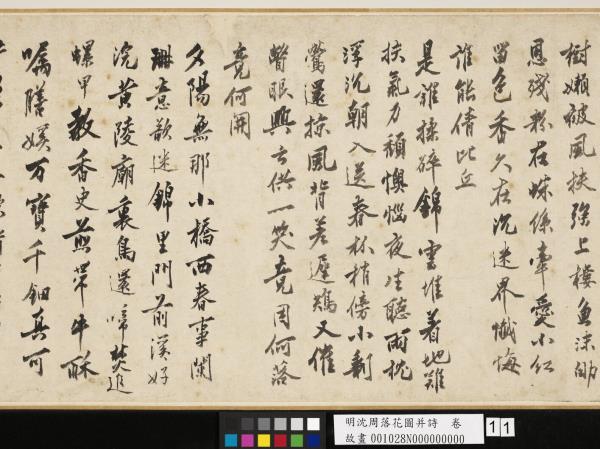 樹嬾被風扶強上樓魚沫劬
恩殘粉在蛛絲牽愛小紅
留色香久在沉迷界懺悔
誰能倩比丘
是誰揉碎錦雲堆着地難
扶氣力頹懊惱夜生聽雨枕
浮沉朝入送春杯梢傍小剩
鶯還掠風背差遲鴂又催
瞥眼興亡供一笑竟因何落
竟何開
夕陽無那小橋西春事闌
珊意欲迷錦里門前溪好
浣黃陵廟裏鳥還啼焚追
螺甲教香史煎帶牛酥
囑膳娭万寶千鈿真可
明沈周落花圖并詩 卷
故畫 001028N000000000
11